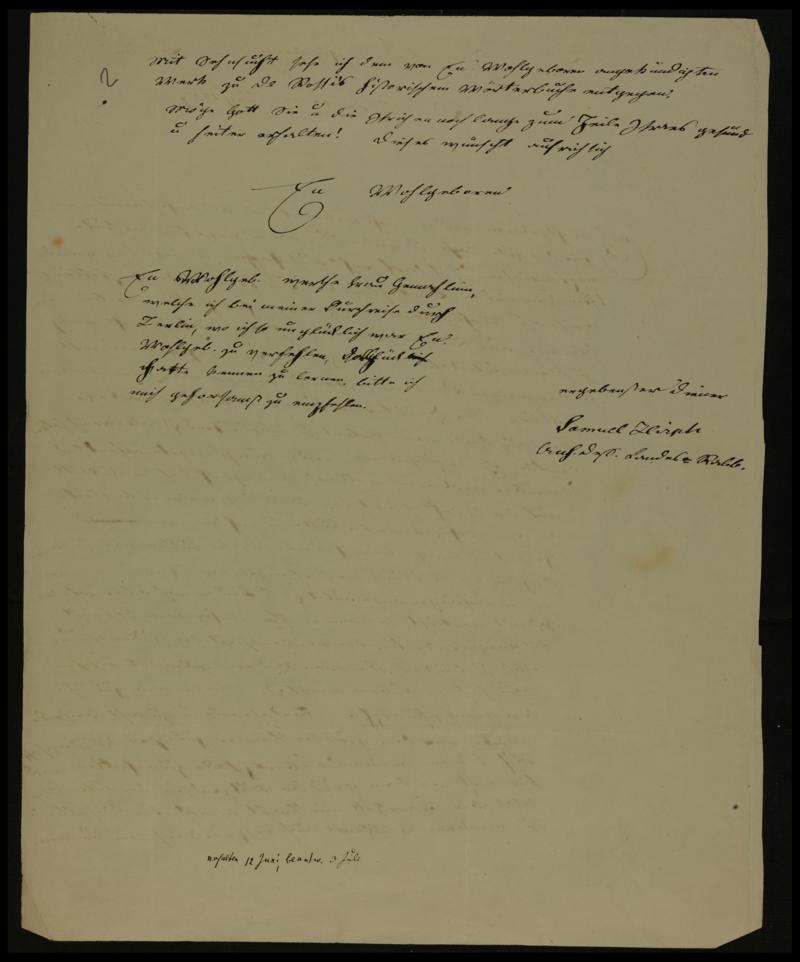 2
Mit Sehnsucht sehe ich dem von Ew Wohlgeboren angekündigten
Werk zu De Rossi's historischem Wörterbuche entgegen.
Möge Gott Sie u die Ihrigen noch lange zum Heile Israels gesund
u heiter erhalten! Dieses wünscht aufrichtig
Ew Wohlgeboren
Ew Wohlgeb. werthe Frau Gemahlinn,
welche ich bei meiner Durchreise durch
Berlin, wo ich so unglücklich war Ew.
Wohlgeb. zu verfehlen, das Glück
hatte kennen zu lernen, bitte ich
mich gehorsamst zu empfehlen.
ergebenster Diener
Samuel Hirsch
Anh. Dess. Landes Rabb.
erhalten 12 Juni, beantw. 3 Juli